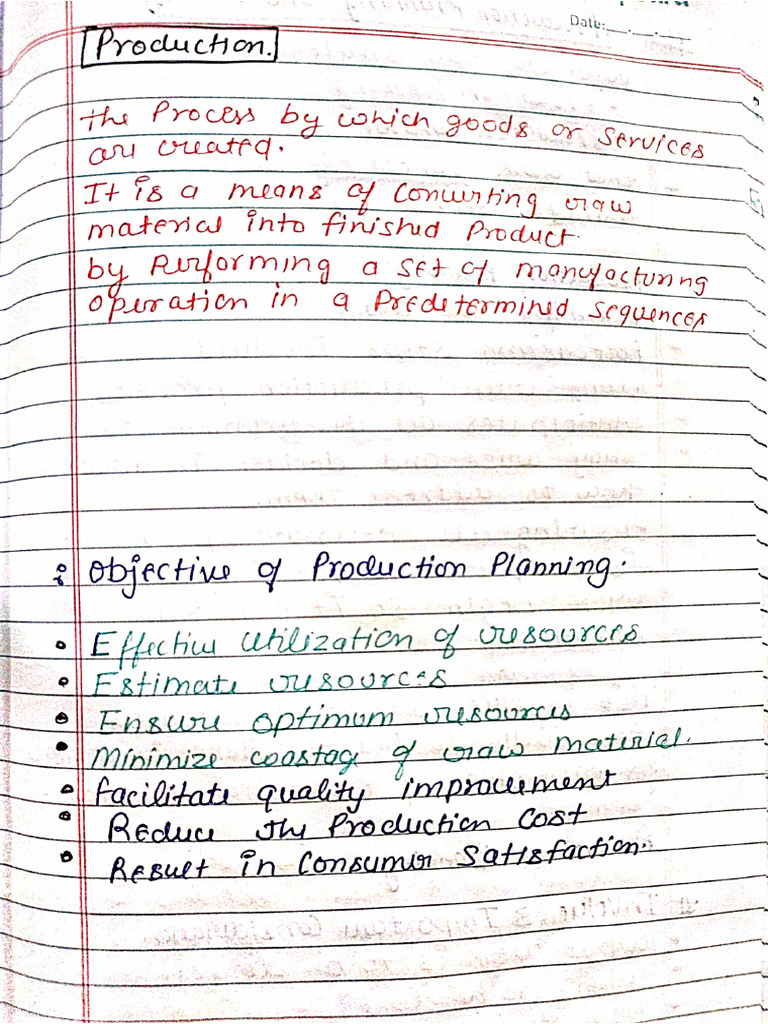 Date:
Production.
the Process by which goods or services
are created.
It is a means of Converting raw
material into finished Product.
by Performing a set of manufacturing
operation in a Predetermined sequences
Objective of Production Planning.
• Effective Utilization of resources
• Estimate resources
• Ensure optimum resources
• Minimize coastag of raw material.
• facilitate quality improvement
• Reduce the Production Cost
• Result in Consumer Satisfaction.